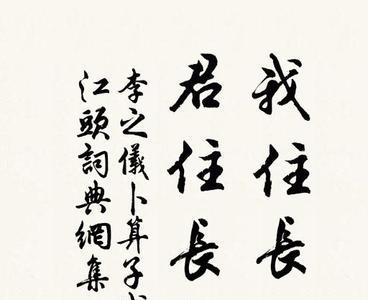 我住長
君住長
李之儀卜算子
江頭詞典網集